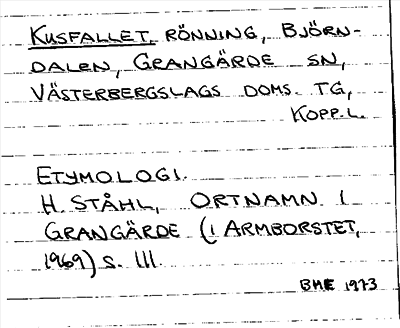 KUSFALLET, RÖNNING, BJÖRN-
DALEN, GRANGÄRDE SN,
VÄSTERBERGSLAGS DOMS. TG,
KOPP.L.
ETYMOLOGI.
H. STÅHL, ORTNAMN I
GRANGÄRDE (I ARMBORSTET,
1969) S. 111.
BME 1973